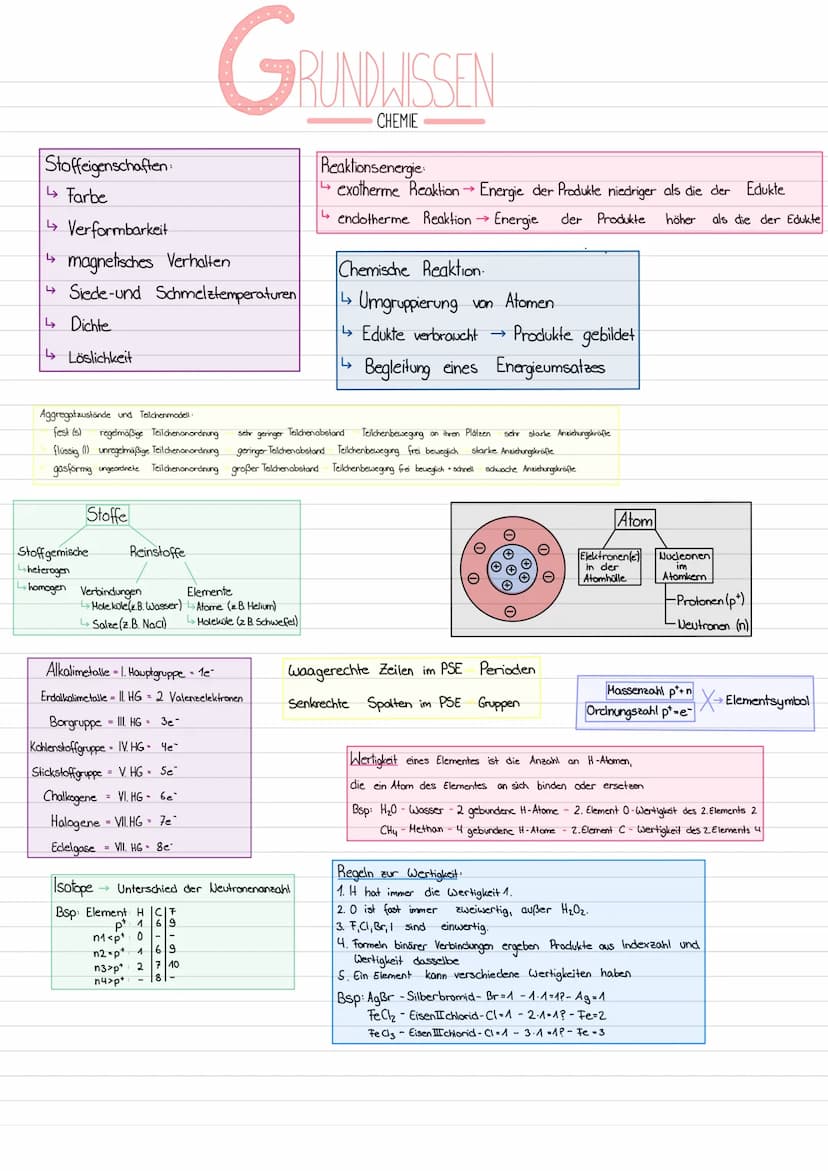 GRUNDWISSEN
CHEMIE
Stoffeigenschaften:
↳ Farbe
↳ Verformbarkeit
↳ magnetisches Verhalten
↳ Siede-und Schmelztemperaturen
↳ Dichte
↳ Löslichkeit
Reaktionsenergie:
↳ exotherme Reaktion → Energie der Produkte niedriger als die der Edukte
↳ endotherme Reaktion → Energie der Produkte höher als die der Edukte
Chemische Reaktion:
↳ Umgruppierung von Atomen
↳ Edukte verbraucht → Produkte gebildet
↳ Begleitung eines Energieumsatzes
Aggregatzustände und Teilchenmodell:
fest (s) regelmäßige Teilchenanordnung sehr geringer Teilchenabstand Teilchenbewegung an ihren Plätzen sehr starke Anziehungskräfte
flüssig (l) unregelmäßige Teilchenanordnung geringer Teilchenabstand Teilchenbewegung frei beweglich starke Anziehungskräfte
gasförmig ungeordnete Teilchenanordnung großer Teilchenabstand Teilchenbewegung frei beweglich + schnell schwache Anziehungskräfte
Stoffe
Stoffgemische Reinstoffe
↳ heterogen
↳ homogen
Verbindungen Elemente
↳ Moleküle (z.B. Wasser) ↳ Atome (z.B Helium)
↳ Salze (z.B. NaCl) ↳ Moleküle (z.B Schwefel)
Atom
Elektronen(e⁻)
in der
Atomhülle
Nucleonen
im
Atomkern
Protonen (p⁺)
Neutronen (n)
Alkalimetalle = I. Hauptgruppe = 1e⁻
Erdalkalimetalle = II. HG = 2 Valenzelektronen
Borgruppe = III. HG = 3e⁻
Kohlenstoffgruppe = IV. HG = 4e⁻
Stickstoffgruppe = V. HG = 5e⁻
Chalkogene = VI. HG = 6e⁻
Halogene = VII. HG = 7e⁻
Edelgase = VII. HG = 8e⁻
Waagerechte Zeilen im PSE Perioden
Senkrechte Spalten im PSE Gruppen
Massenzahl p⁺+n
Ordnungszahl p⁺=e⁻
X → Elementsymbol
Wertigkeit eines Elementes ist die Anzahl an H-Atomen,
die ein Atom des Elementes an sich binden oder ersetzen
Bsp: H₂O - Wasser - 2 gebundene H-Atome - 2. Element O - Wertigkeit des 2. Elements 2
CH₄ - Methan - 4 gebundene H-Atome - 2. Element C - Wertigkeit des 2. Elements 4
Isotope → Unterschied der Neutronenanzahl
Bsp: Element H | C | F
p⁺ 1 | 6 | 9
n1<p⁺ 0 | - | -
n2=p⁺ 1 | 6 | 9
n3>p⁺ 2 | 7 | 10
n4>p⁺ - | 8 | -
Regeln zur Wertigkeit:
1. H hat immer die Wertigkeit 1.
2. O ist fast immer zweiwertig, außer H₂O₂.
3. F, Cl, Br, I sind einwertig.
4. Formeln binärer Verbindungen ergeben Produkte aus Indexzahl und
Wertigkeit dasselbe
5. Ein Element kann verschiedene Wertigkeiten haben
Bsp: AgBr - Silberbromid - Br=1 - 1·1=1? - Ag=1
FeCl₂ - EisenIIchlorid - Cl=1 - 2·1=1? - Fe=2
FeCl₃ - EisenIIIchlorid - Cl=1 - 3·1=1? - Fe=3